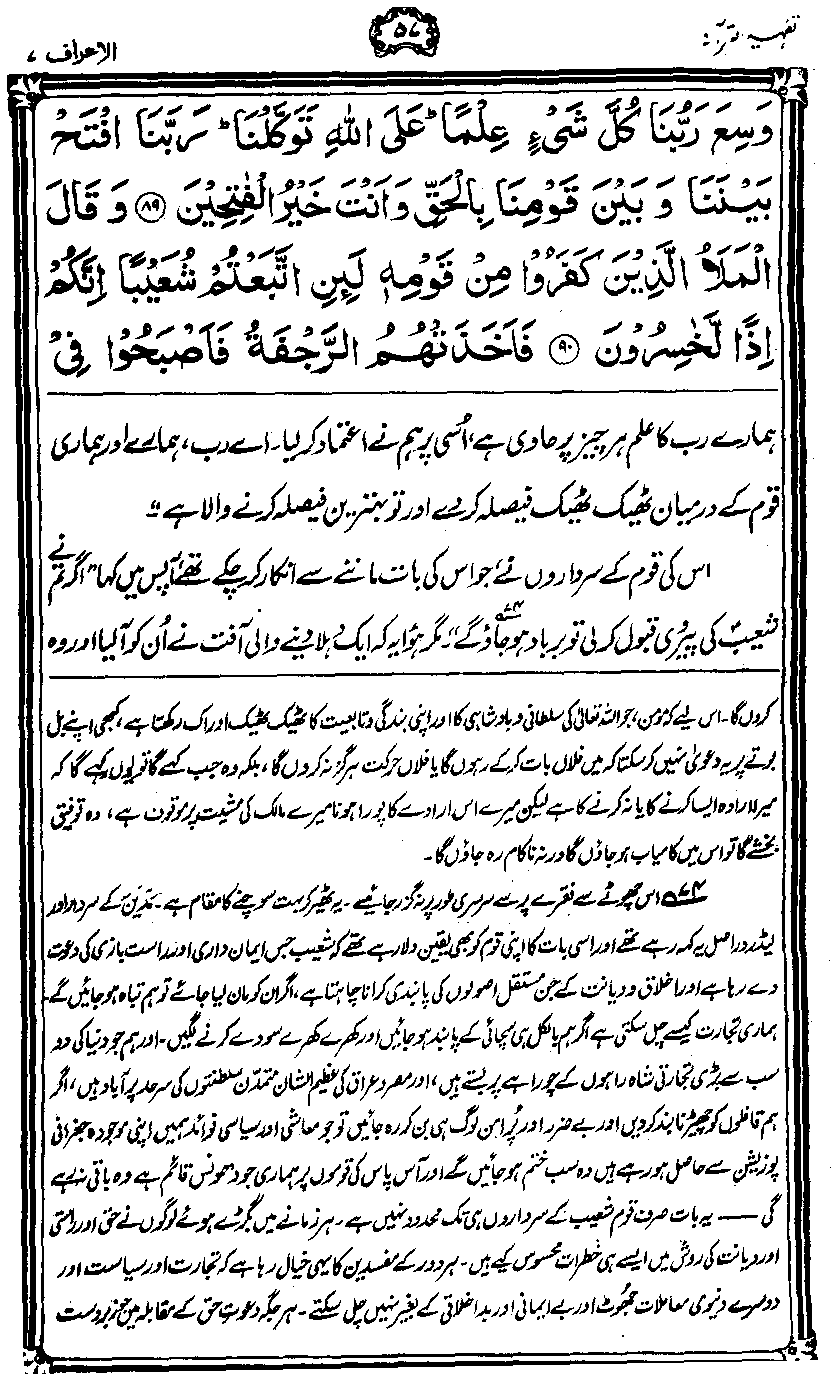 تفہیم القرآن ۲
۵۷
الاعراف ۷
وَسِعَ رَبُّنَا كُلَّ شَیْءٍ عِلْمًا ؕ عَلَی اللّٰهِ تَوَكَّلْنَا ؕ رَبَّنَا افْتَحْ
بَیْنَنَا وَ بَیْنَ قَوْمِنَا بِالْحَقِّ وَ اَنْتَ خَیْرُ الْفٰتِحِیْنَ ﴿۸۹﴾ وَ قَالَ
الْمَلَاُ الَّذِیْنَ كَفَرُوْا مِنْ قَوْمِهٖ لَىِٕنِ اتَّبَعْتُمْ شُعَیْبًا اِنَّكُمْ
اِذًا لَّخٰسِرُوْنَ ﴿۹۰﴾ فَاَخَذَتْهُمُ الرَّجْفَةُ فَاَصْبَحُوْا فِیْ
ہمارے رب کا علم ہر چیز پر حاوی ہے، اُسی پر ہم نے اعتماد کر لیا۔ اے رب، ہمارے اور ہماری
قوم کے درمیان ٹھیک ٹھیک فیصلہ کر دے اور تو بہترین فیصلہ کرنے والا ہے“
اس کی قوم کے سرداروں نے، جو اس کی بات ماننے سے انکار کر چکے تھے، آپس میں کہا ”اگر تم نے
شعیبؑ کی پیروی قبول کر لی تو برباد ہو جاؤ گے“۷۴۔ مگر ہوا یہ کہ ایک دہلا دینے والی آفت نے اُن کو آ لیا اور وہ
کروں گا۔ اس لیے کہ مومن، جو اللہ تعالیٰ کی سلطانی و بادشاہی کا اور اپنی بندگی و تابعیت کا ٹھیک ٹھیک ادراک رکھتا ہے، کبھی اپنے بل
بوتے پر یہ دعویٰ نہیں کر سکتا کہ میں فلاں بات کر کے رہوں گا یا فلاں حرکت ہرگز نہ کروں گا، بلکہ وہ جب کہے گا تو یوں کہے گا کہ
میرا ارادہ ایسا کرنے کا یا نہ کرنے کا ہے لیکن میرے اس ارادے کا پورا ہونا میرے مالک کی مشیت پر موقوف ہے، وہ توفیق
بخشے گا تو اس میں کامیاب ہو جاؤں گا ورنہ ناکام رہ جاؤں گا۔
۷۴ اس چھوٹے سے فقرے پر سے سرسری طور پر نہ گزر جائیے۔ یہ ٹھیر کر بہت سوچنے کا مقام ہے۔ مَدیَن کے سردار اور
لیڈر دراصل یہ کہہ رہے تھے اور اسی بات کا اپنی قوم کو بھی یقین دلا رہے تھے کہ شعیب جس ایمان داری اور راست بازی کی دعوت
دے رہا ہے اور اخلاق و دیانت کے جن مستقل اصولوں کی پابندی کرانا چاہتا ہے، اگر ان کو مان لیا جائے تو ہم تباہ ہو جائیں گے۔
ہماری تجارت کیسے چل سکتی ہے اگر ہم بالکل ہی سچائی کے پابند ہو جائیں اور کھرے کھرے سودے کرنے لگیں۔ اور ہم جو دنیا کی دو
سب سے بڑی تجارتی شاہ راہوں کے چوراہے پر بستے ہیں، اور مصر و عراق کی عظیم الشان متمدن سلطنتوں کی سرحد پر آباد ہیں، اگر
ہم قافلوں کو چھیڑنا بند کر دیں اور بے ضرر اور پُرامن لوگ ہی بن کر رہ جائیں تو جو معاشی اور سیاسی فوائد ہمیں اپنی موجودہ جغرافی
پوزیشن سے حاصل ہو رہے ہیں وہ سب ختم ہو جائیں گے اور آس پاس کی قوموں پر ہماری جو دھونس قائم ہے وہ باقی نہ رہے
گی —— یہ بات صرف قوم شعیب کے سرداروں ہی تک محدود نہیں ہے۔ ہر زمانے میں بگڑے ہوئے لوگوں نے حق اور راستی
اور دیانت کی روش میں ایسے ہی خطرات محسوس کیے ہیں۔ ہر دور کے مفسدین کا یہی خیال رہا ہے کہ تجارت اور سیاست اور
دوسرے دنیوی معاملات جھوٹ اور بے ایمانی اور بداخلاقی کے بغیر نہیں چل سکتے۔ ہر جگہ دعوتِ حق کے مقابلہ میں جو زبردست